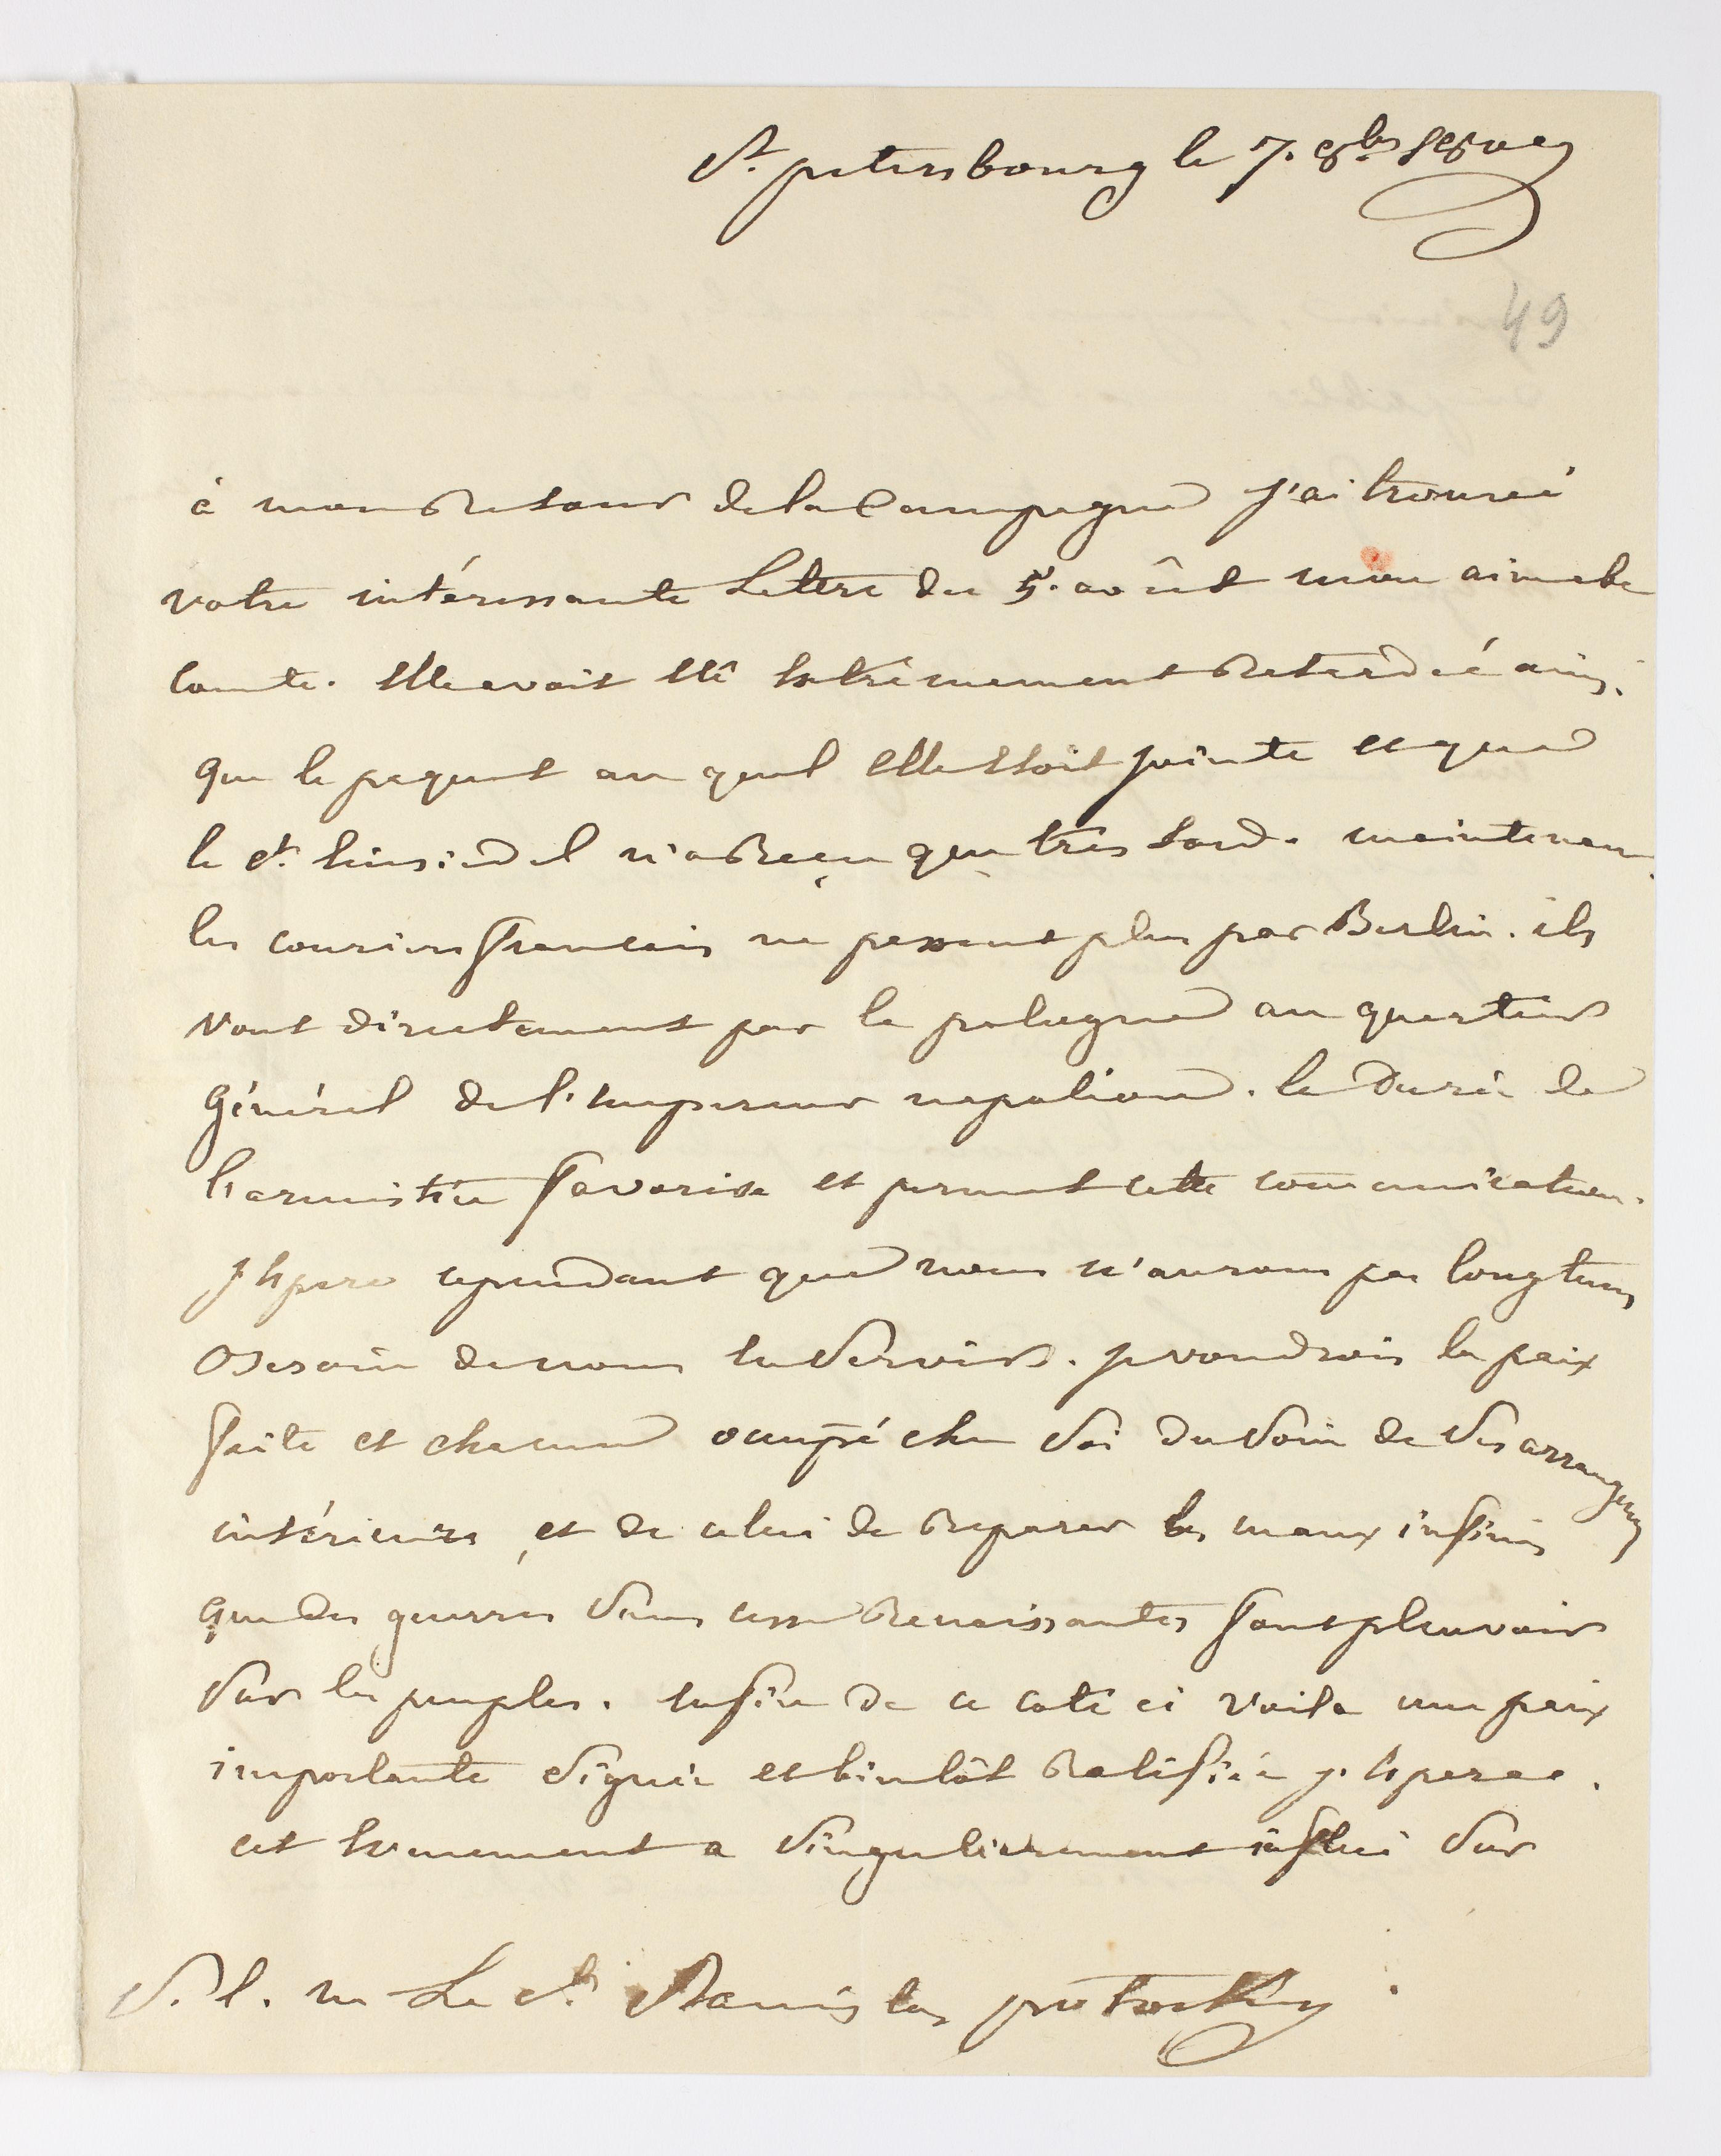 St. petersbourg le 7. 8bre 1809
49
à mon retour de la Campagne j'ai trouvé
votre intéressante Lettre du 5. août mon aimable
Comte. Elle avoit été Extrêmement retardée ainsi
que le paquet au quel Elle Etoit jointe et que
le Ct. Einsiedel n'a reçu que très tard. maintenant
les couriers francais ne passent plus par Berlin. ils
vont directement par la pologne au quartier
Général de l'Empereur napoléon. la Durée de
l'armistice favorise et permet cette communication.
j'Espere cependant que nous n'aurons pas longtems
Besoin de nous En Servir. je voudrois la paix
faite et chacun occupé chez Soi du Soin de Ses arrangemens
intérieurs, et de celui de reparer les maux infinis
que des guerres Sans cesse renaissantes font pleuvoir
Sur les peuples. Enfin de ce coté ci voila une paix
importante Signée et bientôt Ratifiée j. Espere.
cet Evenement a Singulierement influé Sur
S. E. Mr Le Ct. Stanislas pototcky